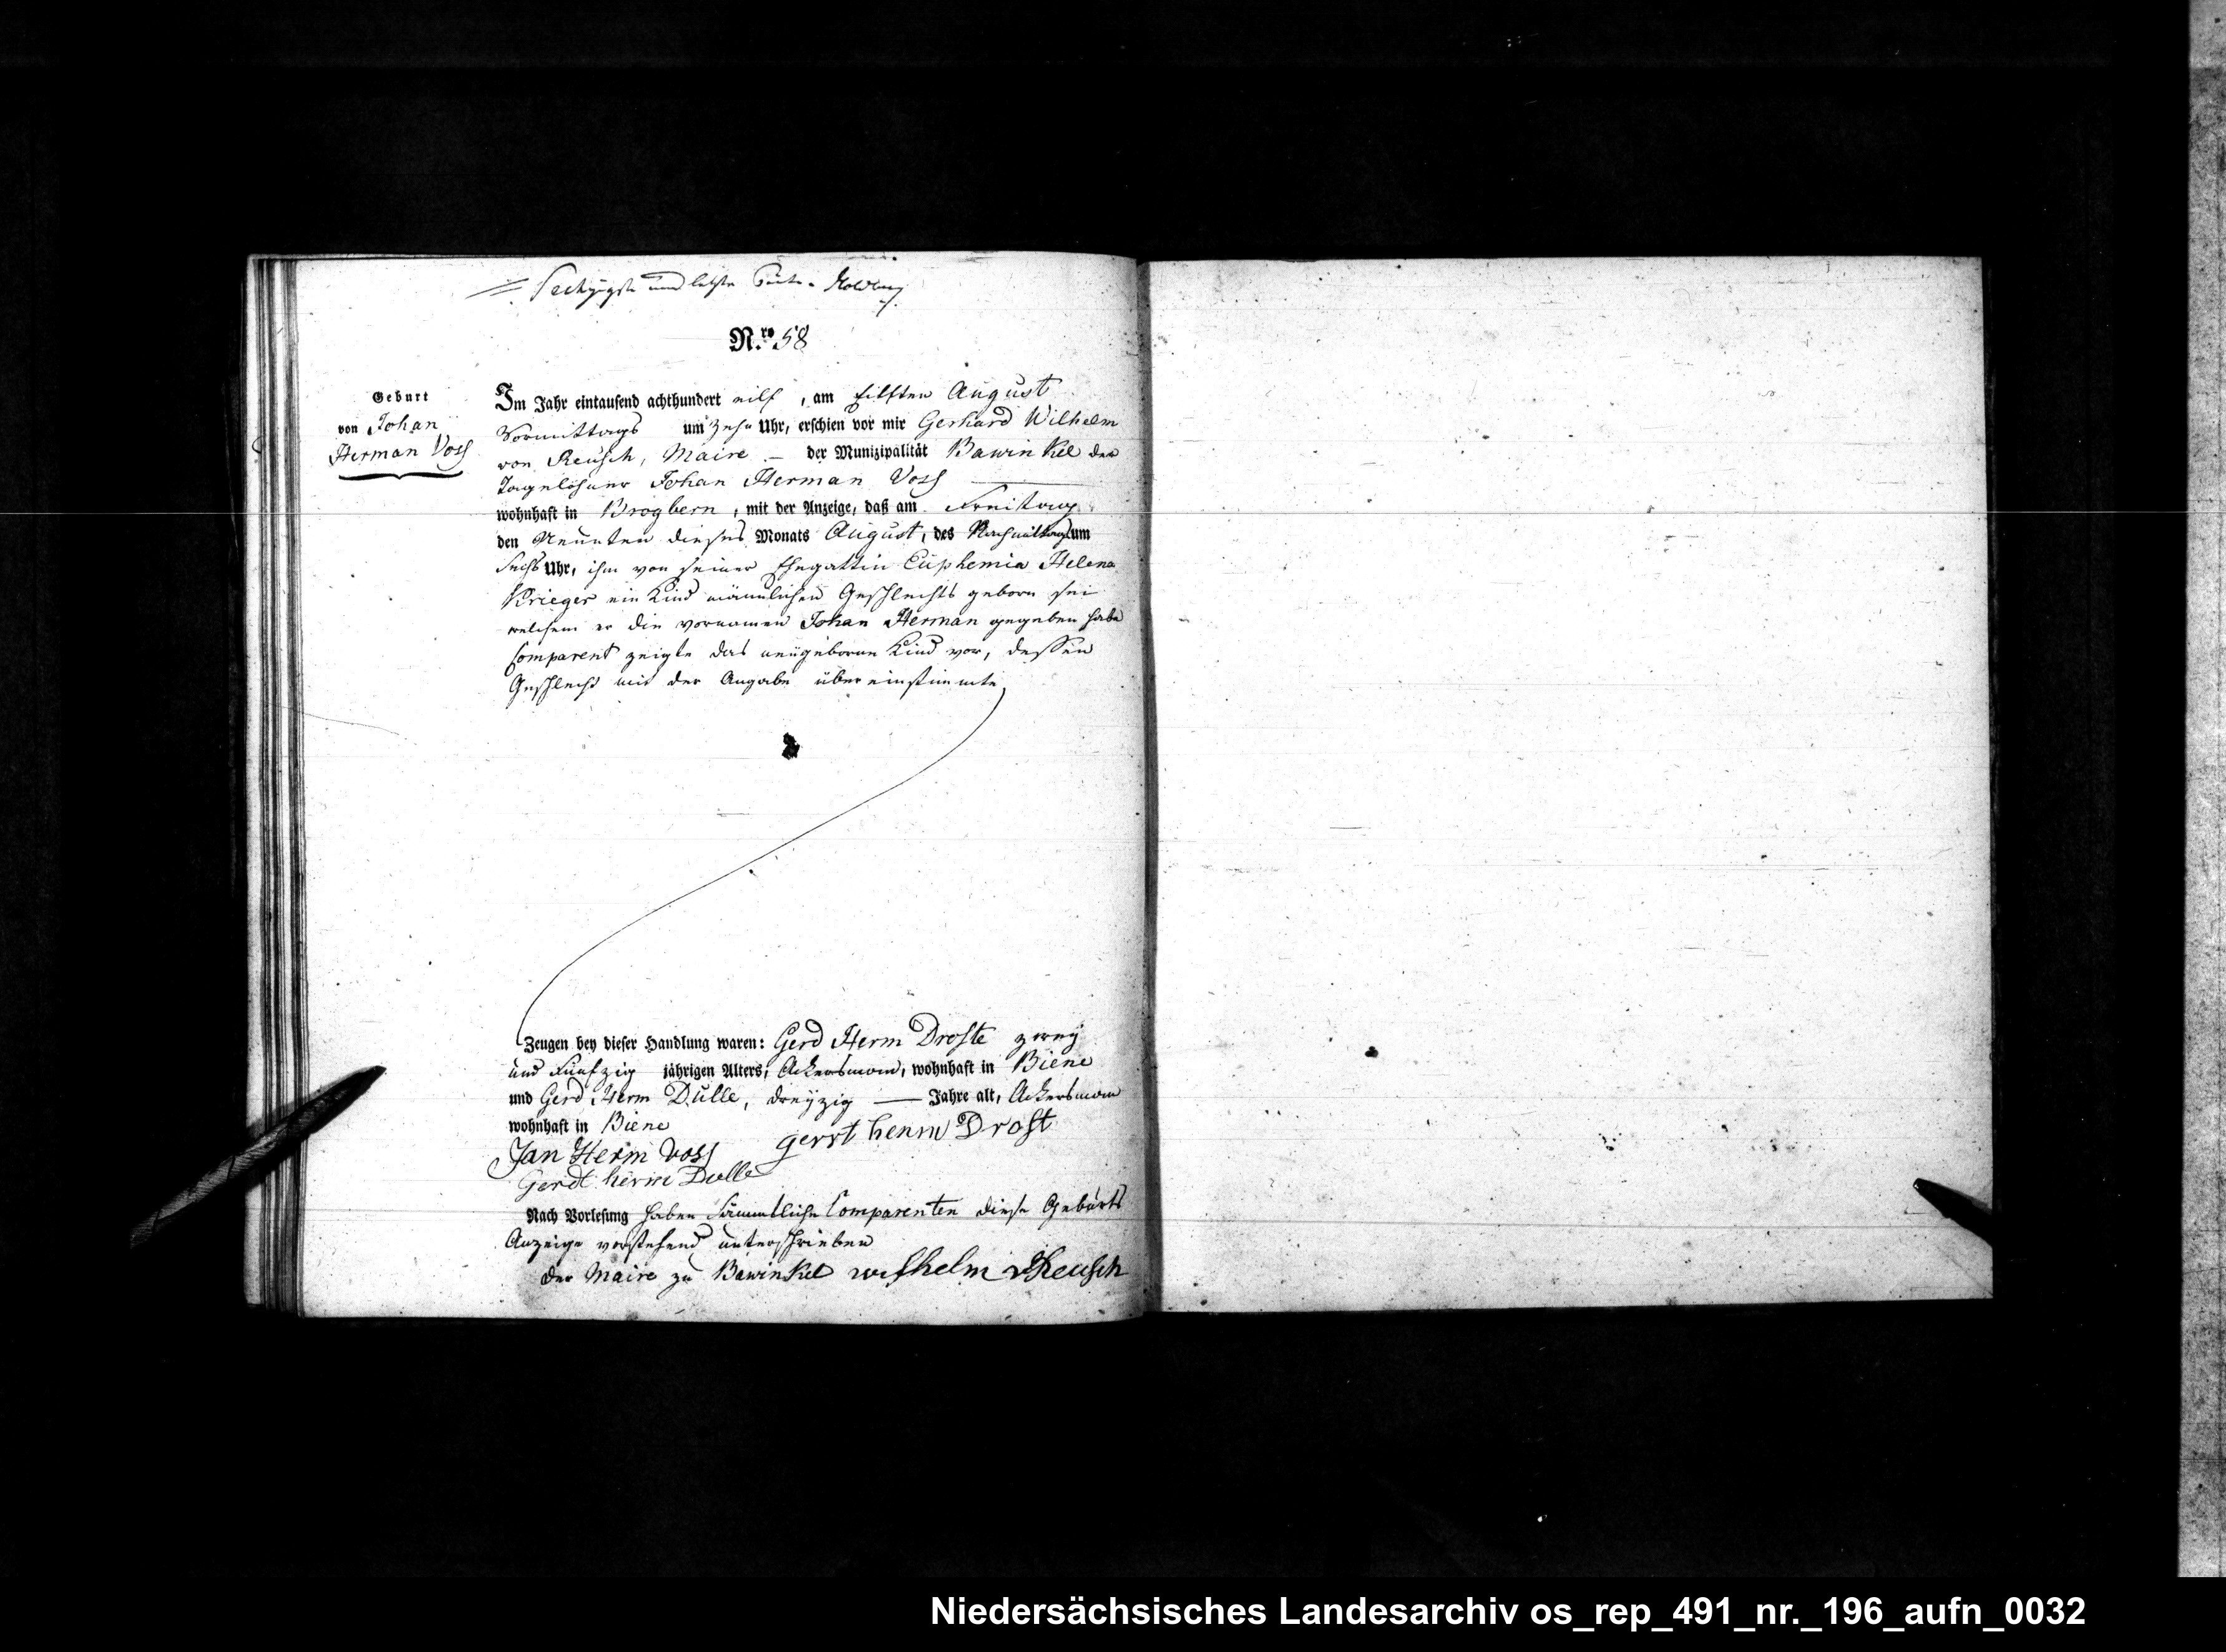 Sechzigste und letzte Seite
Nro 58
Geburt
von Johan
Herman Voss
Im Jahr eintausend achthundert eilf, am Eilften August
Vormittags um zehn Uhr, erschien vor mir Gerhard Wilhelm
von Reusch, Maire – der Munizipalität Bawinkel der
Tagelöhner Johan Herman Voss
wohnhaft in Brogbern, mit der Anzeige, daß am Freitag
den Neunten dieses Monats August, des Nachmittags um
sechs Uhr, ihm von seiner Ehegattin Euphemia Helena
Krieger ein Kind männlichen Geschlechts geboren sei
welchem er die vornamen Johan Herman gegeben habe
Comparent zeigte das neugeborne Kind vor, dessen
Geschlecht mit der Angabe übereinstimmte
Zeugen bey dieser Handlung waren: Gerd Herm Droste zwey
und Fünfzig jährigen Alters, Ackersman, wohnhaft in Biene
und Gerd Herm Dülle, dreyzig — Jahre alt, Ackersman
wohnhaft in Biene
Jan Herm Voss gerrt henm Drost
Gerdt herm Dulle
Nach Vorlesung haben sämmtliche Comparenten diese Geburts
Anzeige vorstehend unterschrieben
der Maire zu Bawinkel wilhelm v Reusch
Niedersächsisches Landesarchiv os_rep_491_nr._196_aufn_0032